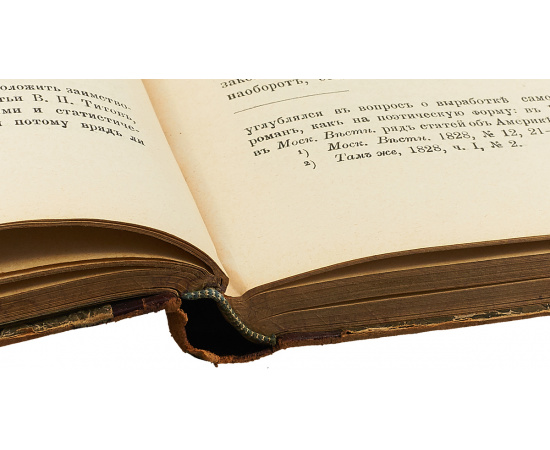 оложить заимство-
тьи В. П. Титовъ,
ми и статистиче-
потому врядъ ли
наоборотъ,
углубился въ вопросъ о выработкѣ само
романъ, какъ на поэтическую форму: въ
въ Моск. Вѣстн. рядъ статей объ Америк
¹) Моск. Вѣстн. 1828, № 12, 21-
²) Тамъ же, 1828, ч. I, № 2.